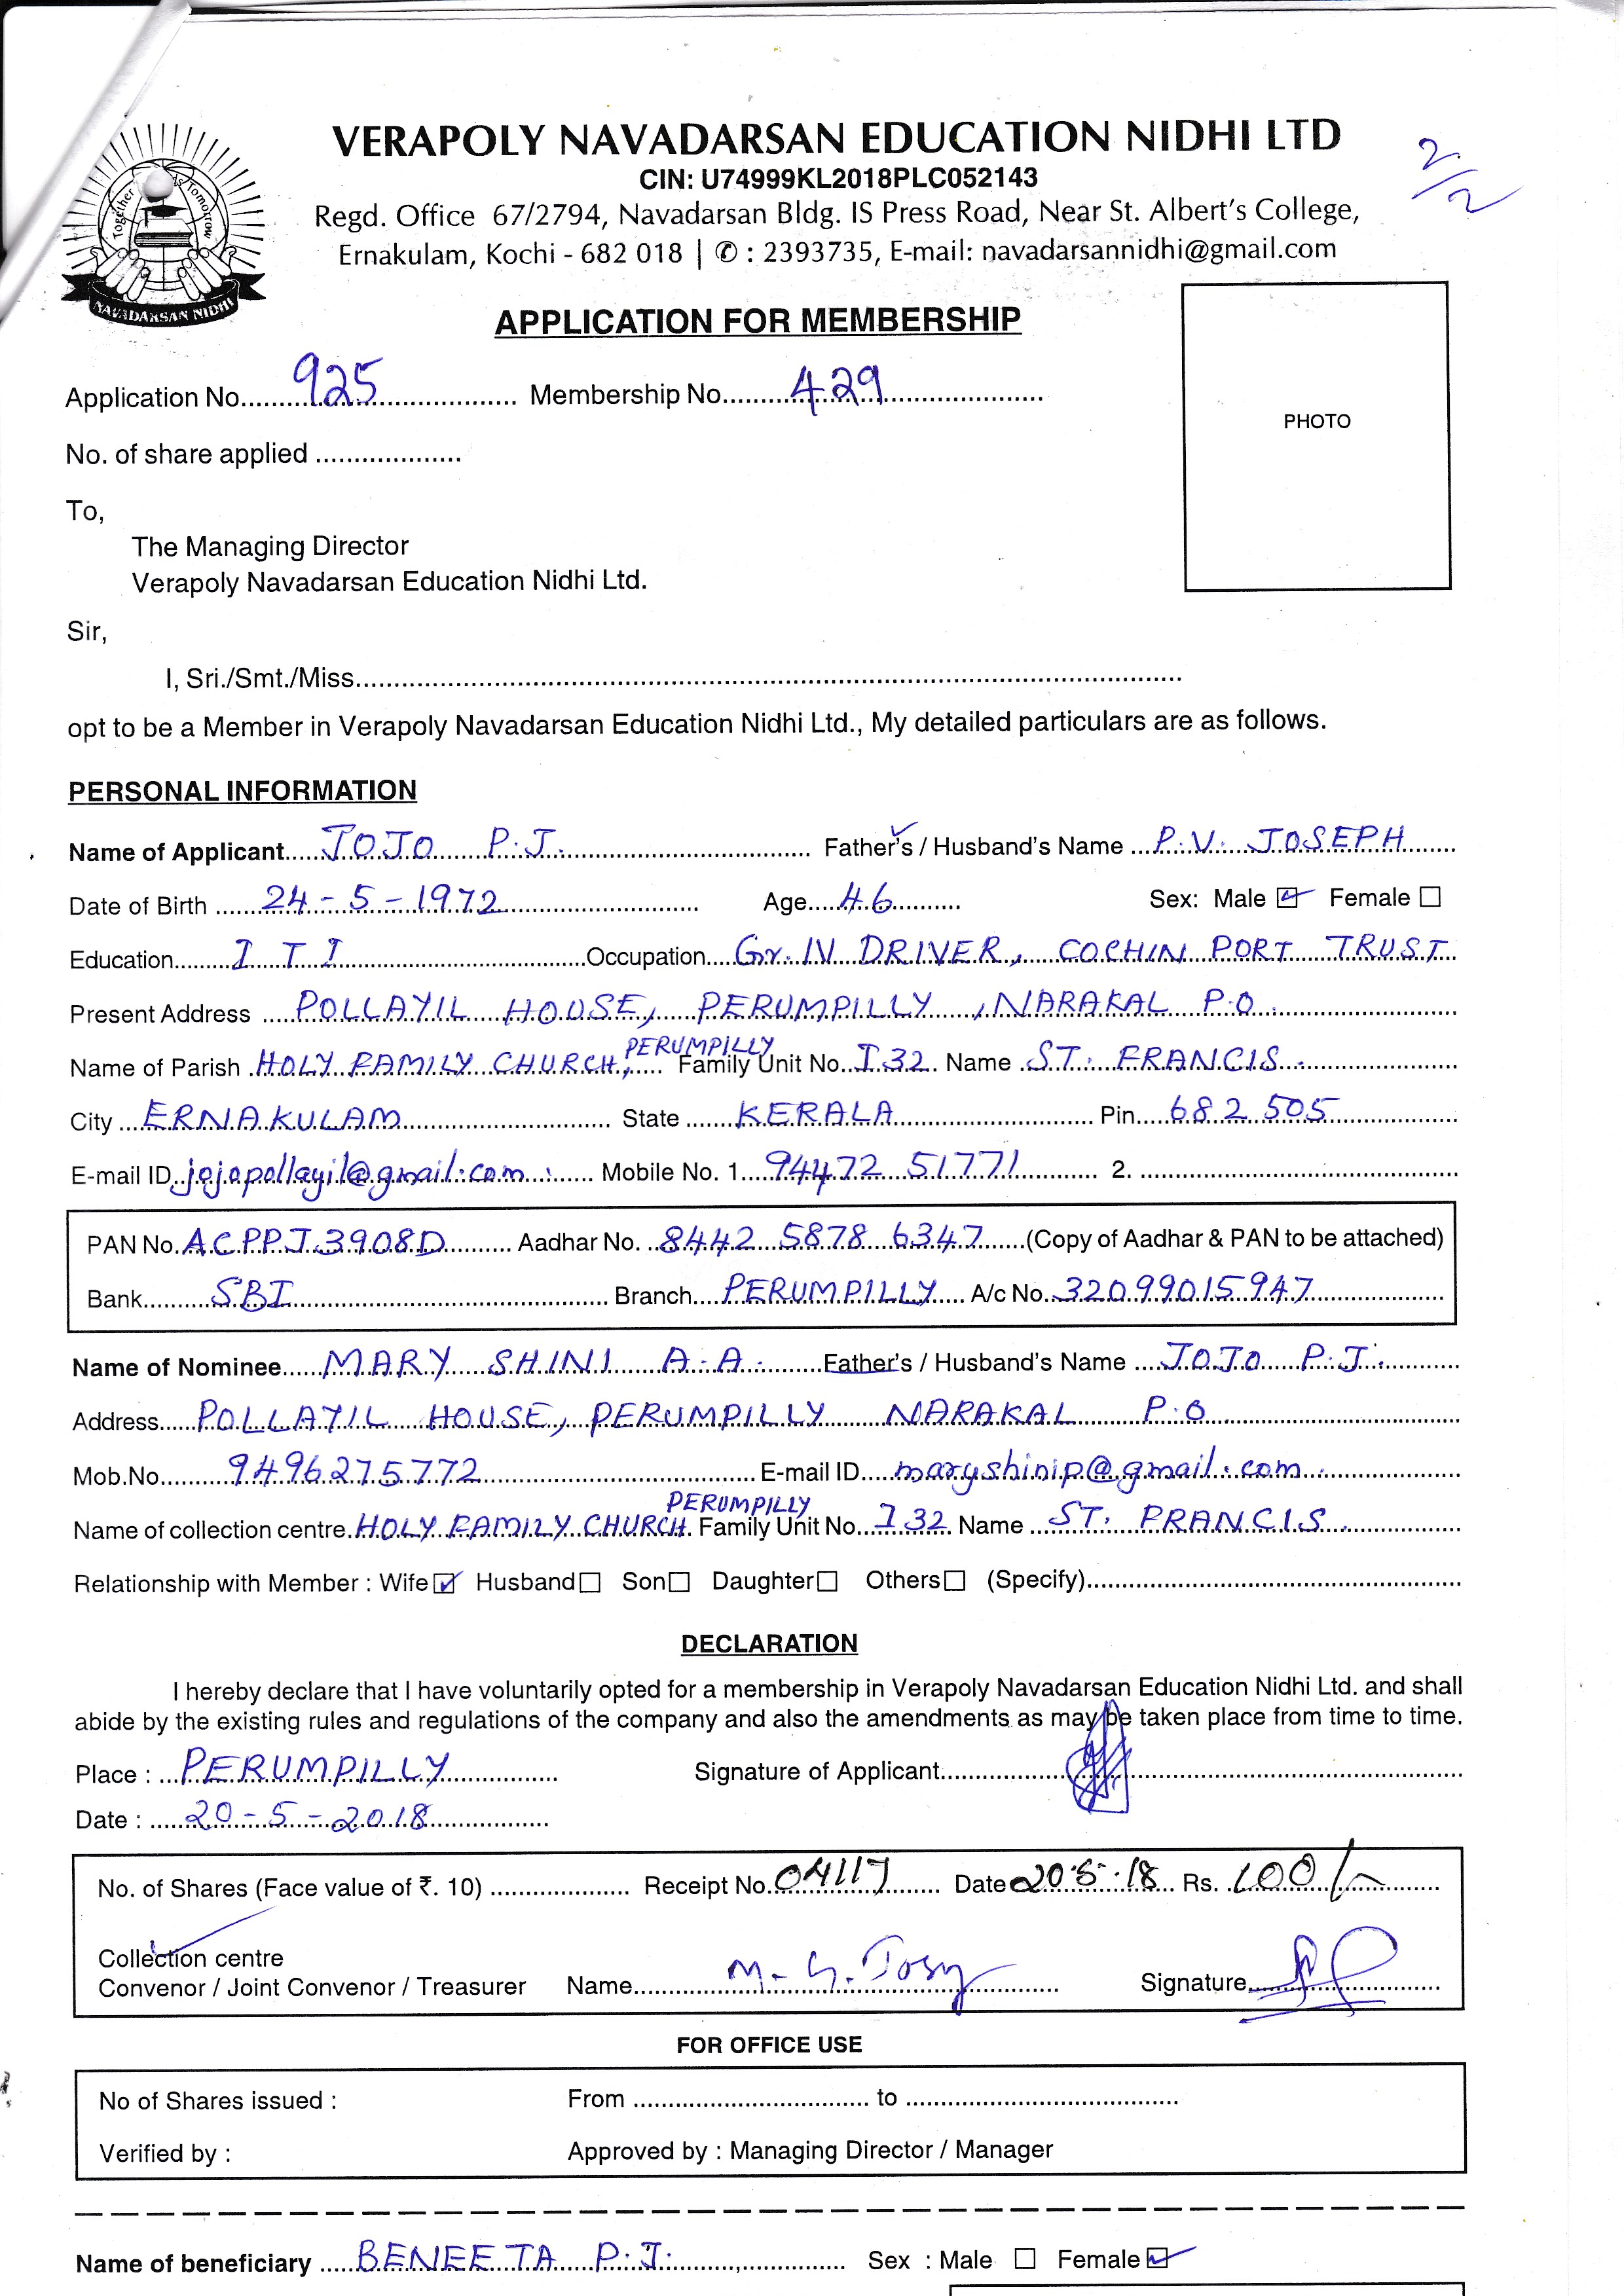 VERAPOLY NAVADARSAN EDUCATION NIDHI LTD
CIN: U74999KL2018PLC052143
Regd. Office 67/2794, Navadarsan Bldg. IS Press Road, Near St. Albert's College,
Ernakulam, Kochi - 682 018 | ✆ : 2393735, E-mail: navadarsannidhi@gmail.com
2/2
Together Tomorrow
NAVADARSAN NIDHI
APPLICATION FOR MEMBERSHIP
Application No. 925 Membership No. 429
PHOTO
No. of share applied
To,
The Managing Director
Verapoly Navadarsan Education Nidhi Ltd.
Sir,
I, Sri./Smt./Miss
opt to be a Member in Verapoly Navadarsan Education Nidhi Ltd., My detailed particulars are as follows.
PERSONAL INFORMATION
Name of Applicant JOJO P.J. Father's / Husband's Name P.V. JOSEPH
Date of Birth 24 - 5 - 1972 Age 46 Sex: Male ☑ Female ☐
Education I T I Occupation Gr. IV DRIVER, COCHIN PORT TRUST
Present Address POLLAYIL HOUSE, PERUMPILLY, NARAKAL P.O.
Name of Parish HOLY FAMILY CHURCH, PERUMPILLY Family Unit No. I 32 Name ST. FRANCIS
City ERNAKULAM State KERALA Pin 682 505
E-mail ID jojopollayil@gmail.com Mobile No. 1 94472 51771 2.
PAN No. ACPPJ3908D Aadhar No. 8442 5878 6347 (Copy of Aadhar & PAN to be attached)
Bank SBI Branch PERUMPILLY A/c No. 32099015947
Name of Nominee MARY SHINI A.A. Father's / Husband's Name JOJO P.J.
Address POLLAYIL HOUSE, PERUMPILLY NARAKAL P.O
Mob.No. 9496275772 E-mail ID maryshinip@gmail.com
Name of collection centre HOLY FAMILY CHURCH. PERUMPILLY Family Unit No. I 32 Name ST. FRANCIS
Relationship with Member : Wife ☑ Husband ☐ Son ☐ Daughter ☐ Others ☐ (Specify)
DECLARATION
I hereby declare that I have voluntarily opted for a membership in Verapoly Navadarsan Education Nidhi Ltd. and shall
abide by the existing rules and regulations of the company and also the amendments as may be taken place from time to time.
Place : PERUMPILLY Signature of Applicant
Date : 20 - 5 - 2018
No. of Shares (Face value of ₹. 10) Receipt No. 04117 Date 20.5.18 Rs. 100/-
Collection centre
Convenor / Joint Convenor / Treasurer Name M. G. Josy Signature
FOR OFFICE USE
No of Shares issued : From to
Verified by : Approved by : Managing Director / Manager
Name of beneficiary BENEETA P.J. Sex : Male ☐ Female ☑